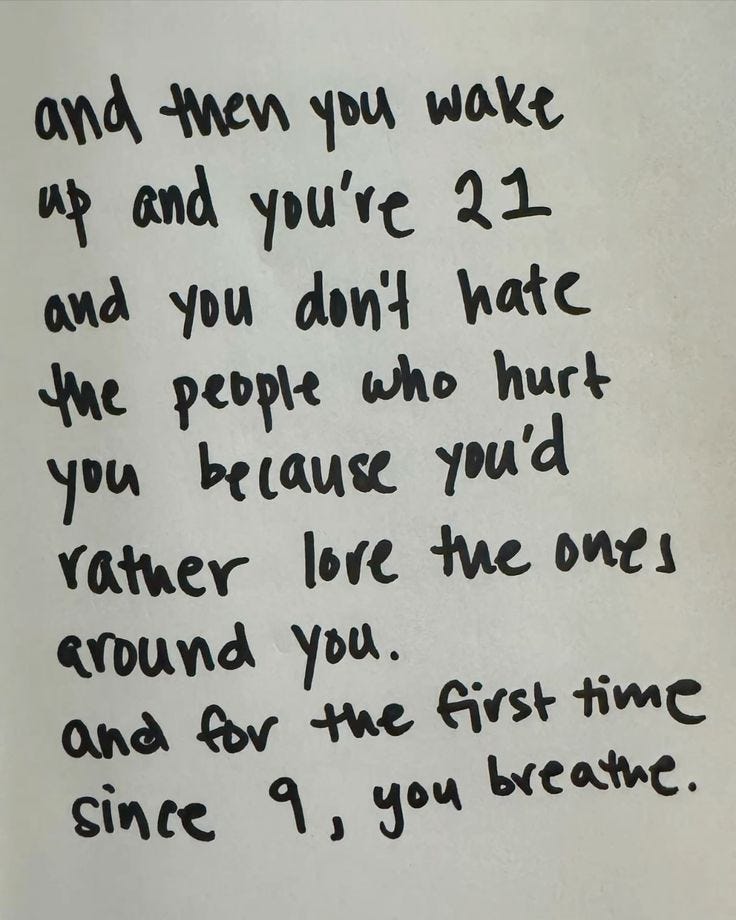 and then you wake
up and you're 21
and you don't hate
the people who hurt
you because you'd
rather love the ones
around you.
and for the first time
since 9, you breathe.